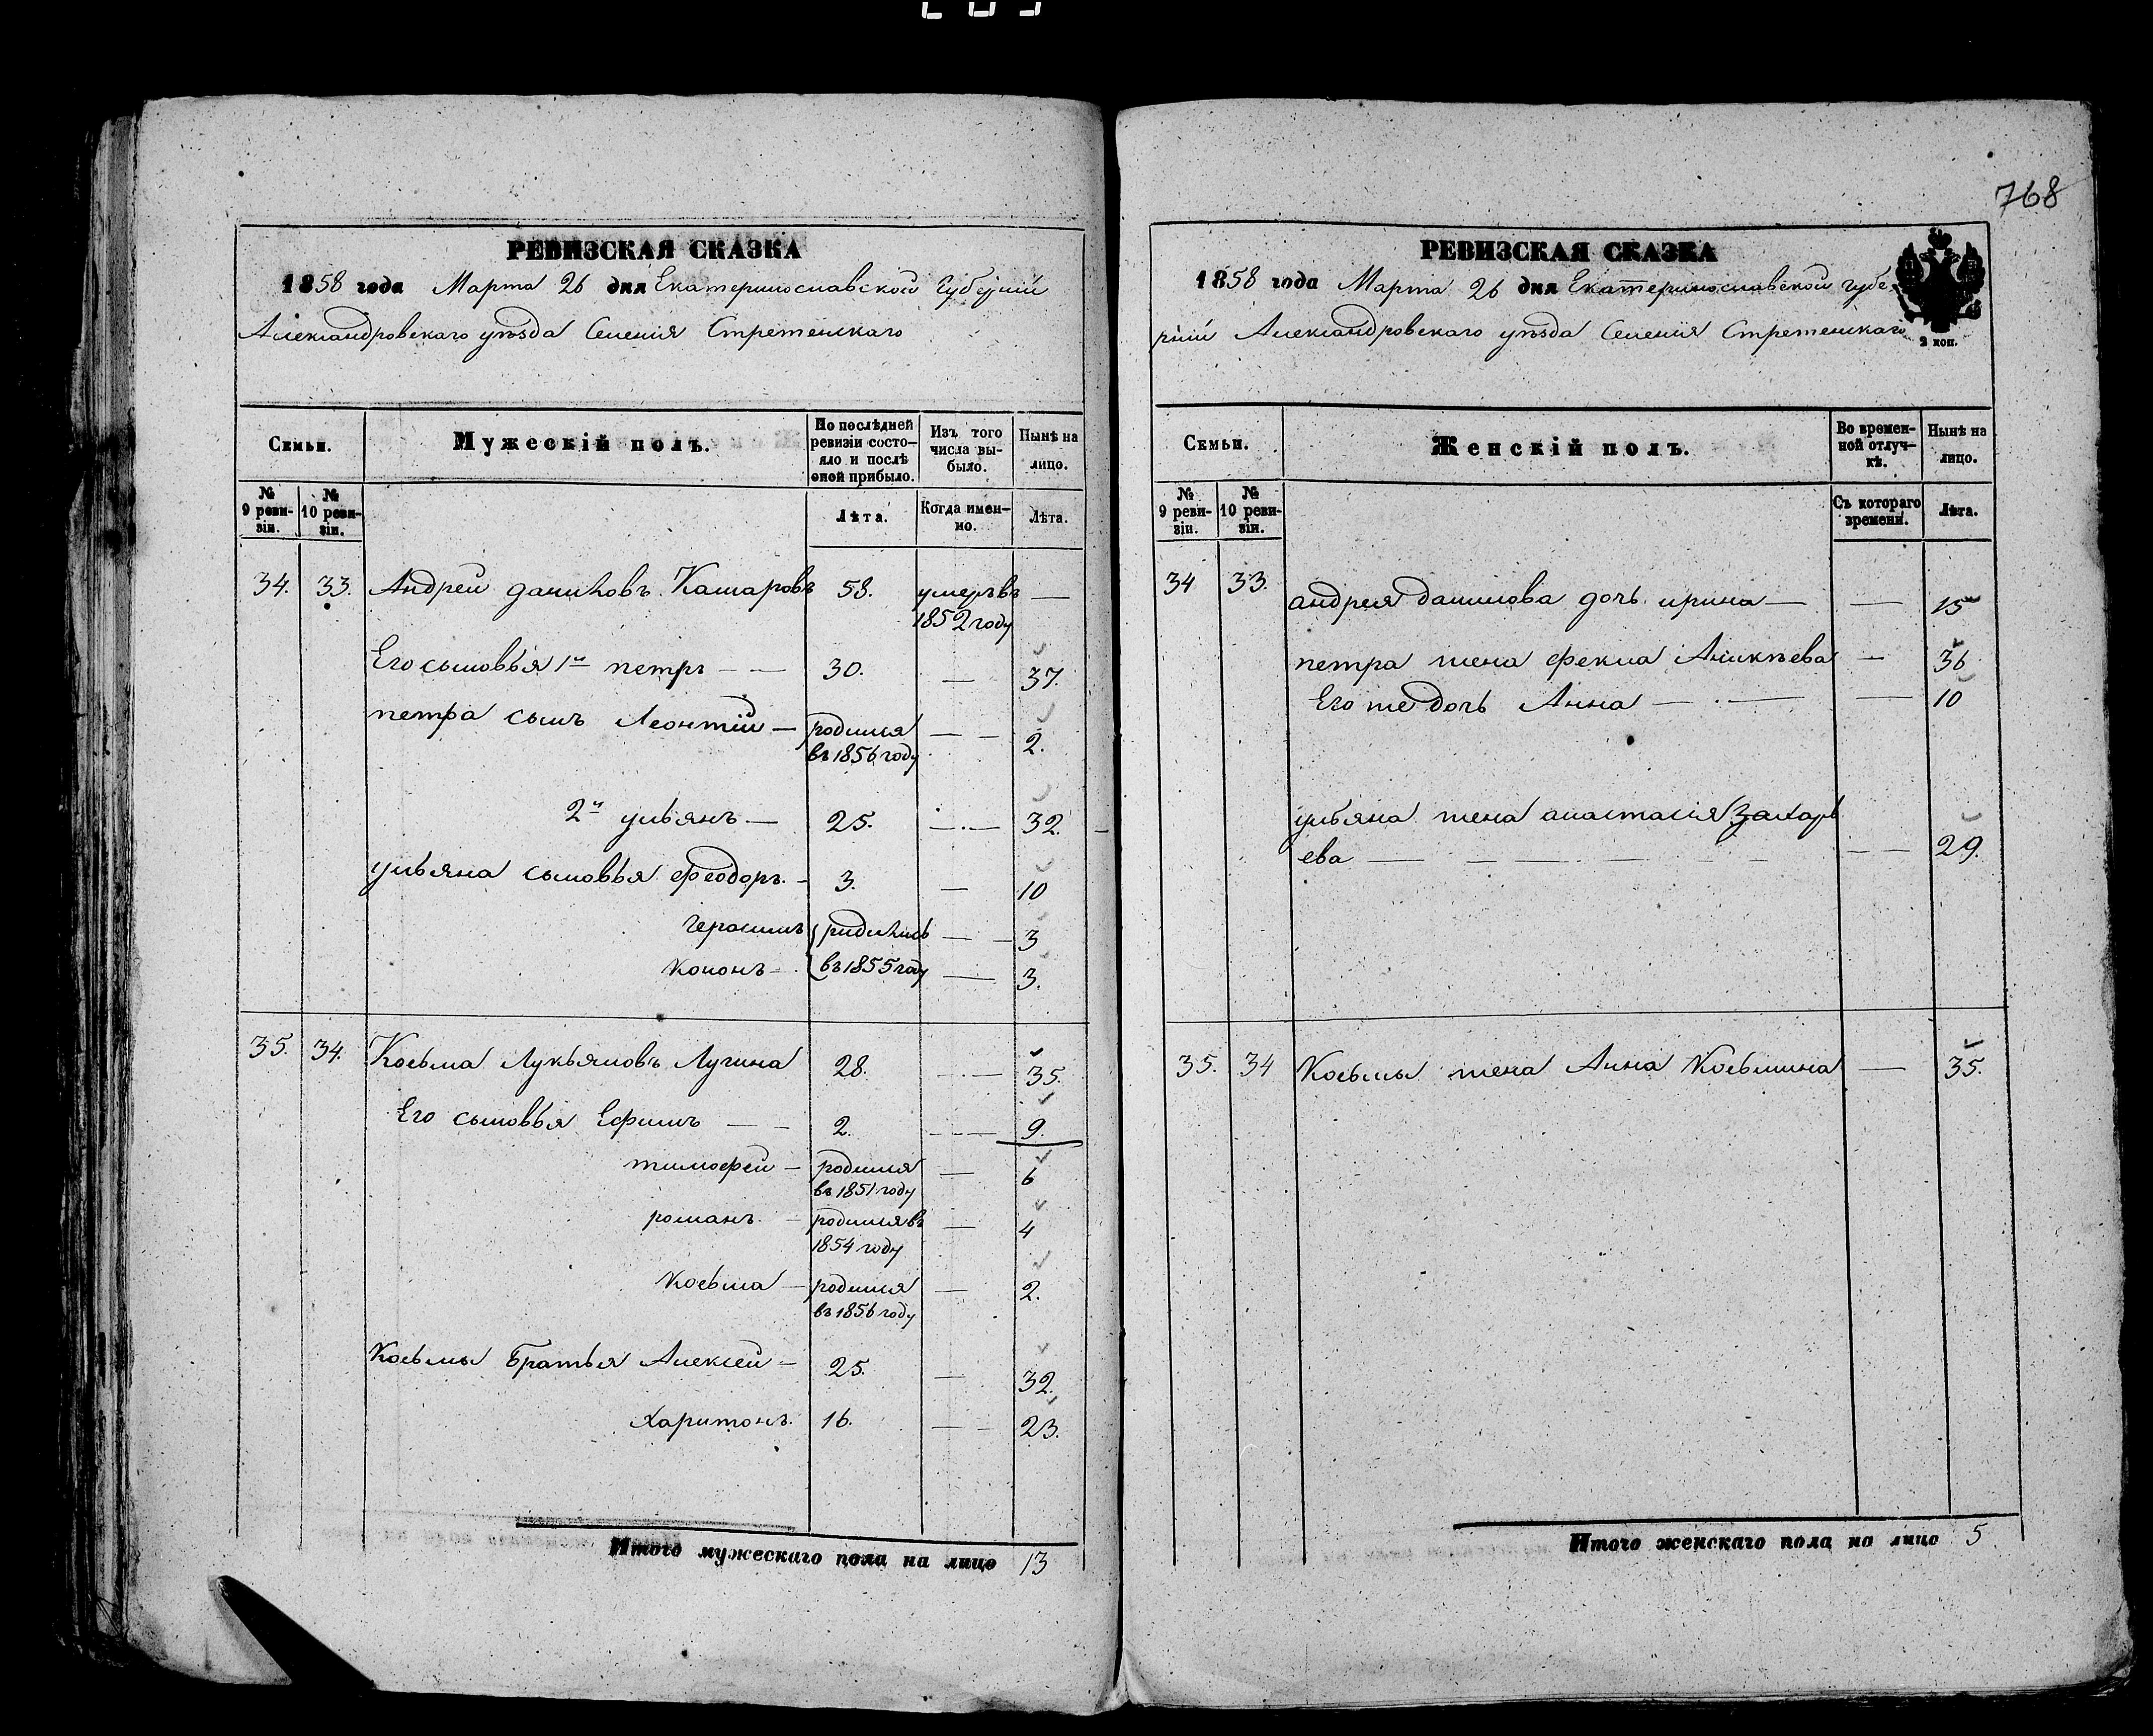 РЕВИЗСКАЯ СКАЗКА
1858 года Марта 26 дня Екатеринославской Губерніи
Александровскаго уѣзда Селенія Стретенскаго
Семьи.
Мужескій полъ.
По послѣдней ревизіи состояло и послѣ оной прибыло.
Изъ того числа выбыло.
Нынѣ на лицо.
№ 9 ревизіи.
№ 10 ревизіи.
Лѣта.
Когда именно.
Лѣта.
34. 33. Андрей даниловъ Кашаровъ 58. умеръ въ —
1852 году
Его сыновья 1й петръ — — 30. — 37.
петра сынъ Леонтій — родился — — 2.
въ 1856 году
2й ульянъ — 25. — . — 32.
ульяна сыновья феодоръ. - 3. — 10
герасимъ родились — — 3
кононъ — въ 1855 году — 3.
35. 34. Косьма Лукьяновъ Лучина 28. — . — 35.
Его сыновья Ефимъ — — 2. — — 9.
тимофей — родился — 6
въ 1851 году
романъ. — родился въ — 4
1854 году
Косьма — родился — 2.
въ 1856 году
Косьмы братья Алексей — 25. — 32.
Харитонъ. 16. — — 23.
Итого мужескаго пола на лицо 13
768
РЕВИЗСКАЯ СКАЗКА
1858 года Марта 26 дня Екатеринославской губе-
рніи Александровскаго уѣзда Селенія Стретенскаго
2 коп.
Семьи.
Женскій полъ.
Во временной отлучкѣ.
Нынѣ на лицо.
№ 9 ревизіи.
№ 10 ревизіи.
Съ котораго времени.
Лѣта.
34 33. андрея данилова дочь ирина — — 15
петра жена фекла Аникѣева — 36
Его же дочь Анна — . — — 10
ульяна жена анастасія Захарь
ева — — — — — — 29.
35. 34 Косьмы жена Анна Косьмина — 35.
Итого женскаго пола на лицо 5